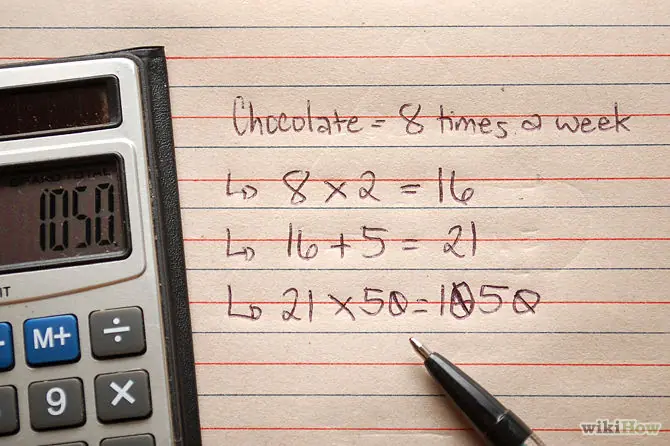 Chocolate = 8 times a week
↳ 8 × 2 = 16
↳ 16 + 5 = 21
↳ 21 × 50 = 1050
GRAND TOTAL
1050
M+
÷
9
×
wikiHow